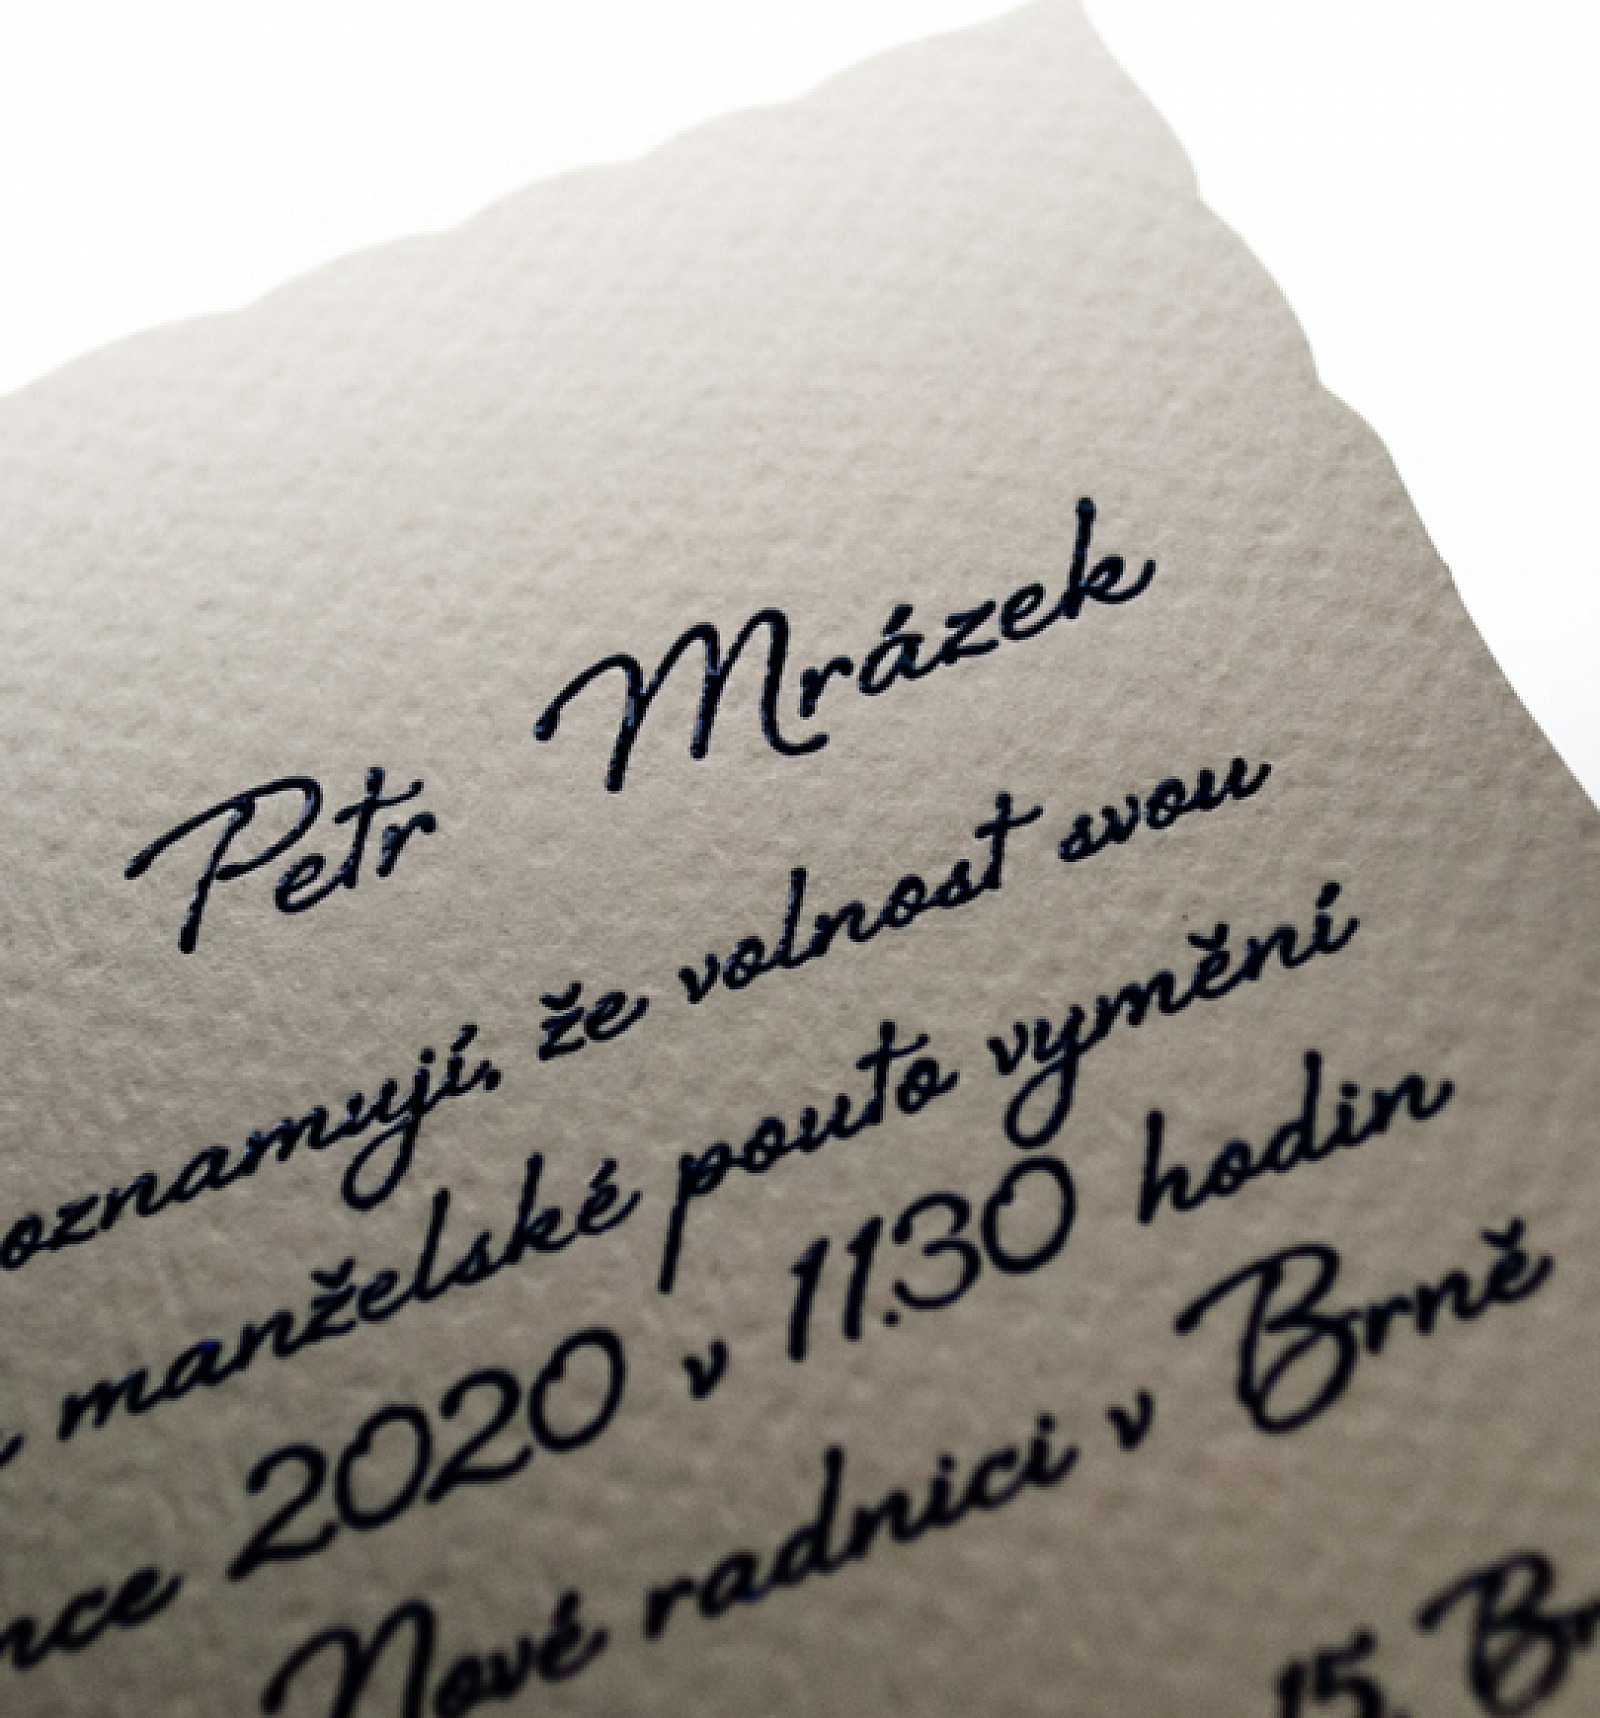 Petr Mrázek
oznamují, že volnost svou
manželské pouto vymění
nce 2020 v 11.30 hodin
Nové radnici v Brně
15, Br